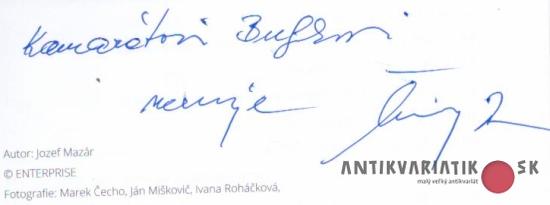 Kamarátovi
venuje
Autor: Jozef Mazár
© ENTERPRISE
Fotografie: Marek Čecho, Ján Miškovič, Ivana Roháčková,
ANTIKVARIATIK SK
malý veľký antikvariát